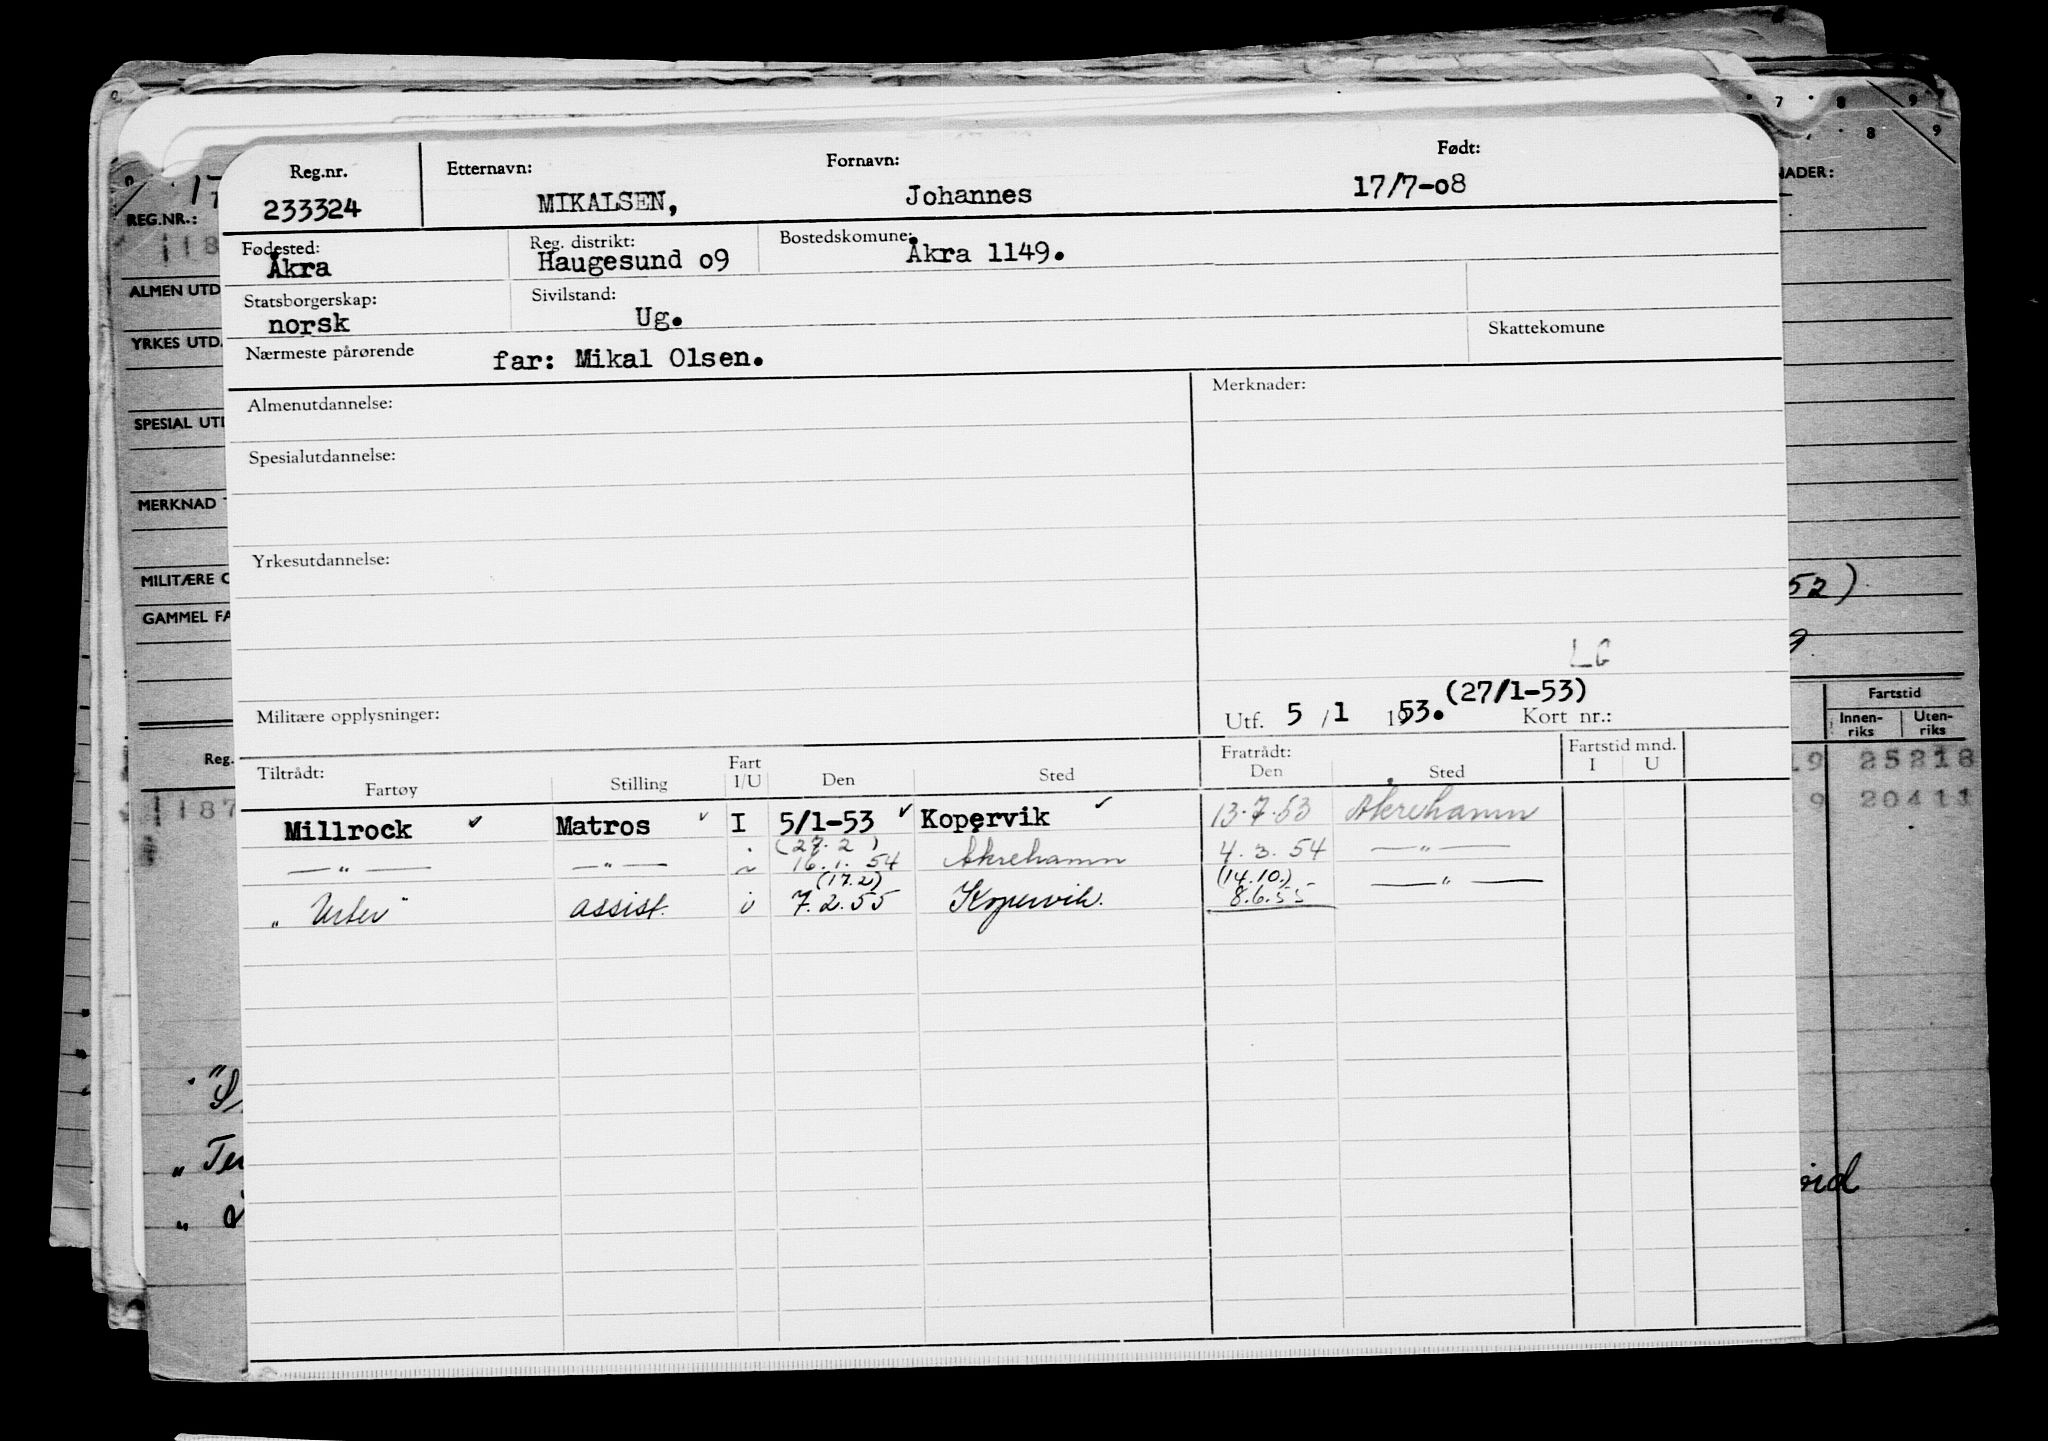 Reg.nr. Etternavn: Fornavn: Født:
233324 MIKALSEN, Johannes 17/7-08
Fødested: Reg. distrikt: Bostedskomune:
Åkra Haugesund 09 Åkra 1149.
Statsborgerskap: Sivilstand:
norsk Ug.
Nærmeste pårørende far: Mikal Olsen. Skattekomune
Almenutdannelse: Merknader:
Spesialutdannelse:
Yrkesutdannelse:
LG
(27/1-53)
Militære opplysninger: Utf. 5 /1 1953. Kort nr.:
Tiltrådt: Fratrådt: Fartstid mnd.
Fartøy Stilling Fart I/U Den Sted Den Sted I U
Millrock ✓ Matros ✓ I 5/1-53 ✓ Kopervik ✓ 13.7.53 Åkrehamn
(27.2)
—"— —"— 16.1.54 Åkrehamn 4.3.54 —"—
(17.2) (14.10.)
"Uter" assist. i 7.2.55 Kopervik. 8.6.55 —"—
REG.NR.:
ALMEN UTD
YRKES UTD.
SPESIAL UTD
MERKNAD
MILITÆRE O
GAMMEL FA
Reg.
187
"Te
NADER:
7 8 9
8 9
52)
Fartstid
Innen-riks Uten-riks
19 25218
9 20411
vid